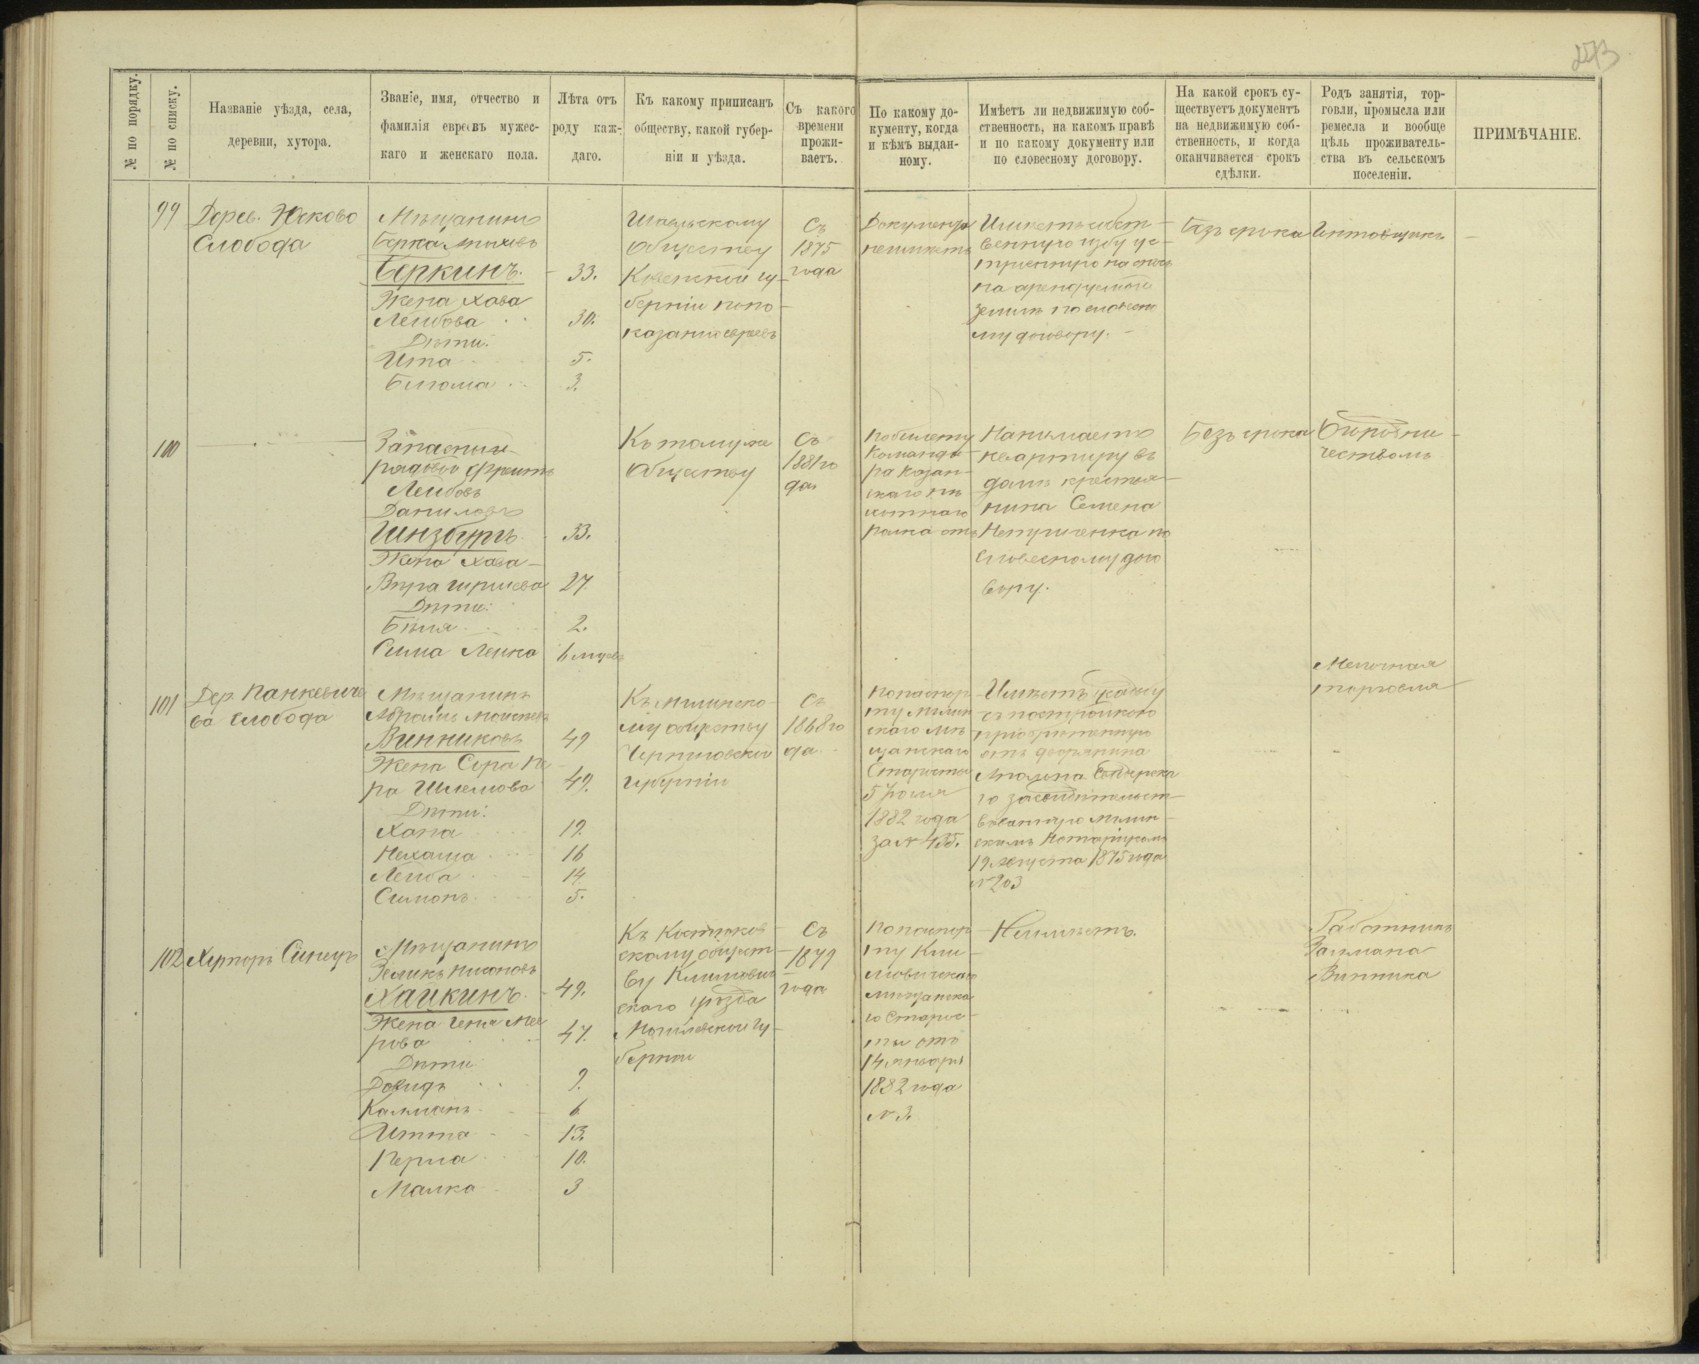 273
№ по порядку.
№ по списку.
Названіе уѣзда, села,
деревни, хутора.
Званіе, имя, отчество и
фамилія евреевъ мужес-
каго и женскаго пола.
Лѣта отъ
роду каж-
даго.
Къ какому приписанъ
обществу, какой губер-
ніи и уѣзда.
Съ какого
времени
прожи-
ваетъ.
По какому до-
кументу, когда
и кѣмъ выдан-
ному.
Имѣетъ ли недвижимую соб-
ственность, на какомъ правѣ
и по какому документу или
по словесному договору.
На какой срокъ су-
ществуетъ документъ
на недвижимую соб-
ственность, и когда
оканчивается срокъ
сдѣлки.
Родъ занятія, тор-
говли, промысла или
ремесла и вообще
цѣль проживатель-
ства въ сельскомъ
поселеніи.
ПРИМѢЧАНІЕ.
99
Дерев.
Слобода
Мѣщанинъ
Берка
Беркинъ.
33.
Жена Хава
Лейбова
30.
Дѣти:
Ита
5.
3.
Обществу
Ковенской гу-
берніи по по-
казанію евреевъ
Съ
1875
года
Документа
неимѣетъ
Имѣетъ собст-
венную избу ус-
на арендуемой
землѣ по словесно
му договору.
Безъ срока
100
Запасный
рядовой
Лейбовъ
Даниловъ
Гинзбургъ
33.
Жена Хава
Вѣра Гиршева
27
Дѣти:
Бѣля
2.
Сима Лейка
6 мѣсяц
Къ тому же
Обществу
Съ
1881 го
да
По билету
Команди
ра Казан-
скаго пѣ
хотнаго
полка отъ
Нанимаетъ
квартиру въ
домѣ крестья-
нина Семена
по
словесному дого
вору.
Безъ срока
101
Дер. Панкевиче
ва Слобода
Мѣщанинъ
Абрамъ
Винниковъ
49
Жена Сора
ра Шлемова
49.
Дѣти:
Хана
19.
Нехама
16
Лейба
14
Симонъ
5.
Къ Мглинско-
му обществу
Черниговской
губерніи
Съ
1868 го
да
По паспор
ту Мглин
скаго мѣ
щанскаго
Старосты
5 Іюля
1882 года
за № 455.
Имѣетъ усадьбу
съ постройкою
пріобрѣтенную
отъ дворянина
го засвидѣтельст-
вованную Мглин-
скимъ Нотаріусомъ
19 Августа 1875 года
№ 203
Мелочная
торговля
102
Хуторъ Синецъ
Мѣщанинъ
Зеликъ
Хайкинъ.
49.
Жена Геня Ме
рова
47.
Дѣти
Довидъ
9.
Калманъ
6
Итта
13.
Перла
10.
Малка
3
скому общест-
ву Климович
скаго уѣзда
Могилевской гу-
берніи
Съ
1879
года
По паспор
ту Кли
мовичскаго
мѣщанска
го Старос-
ты отъ
14 января
1882 года
№ 3.
Неимѣетъ.
Работникъ
Залмана
Винника